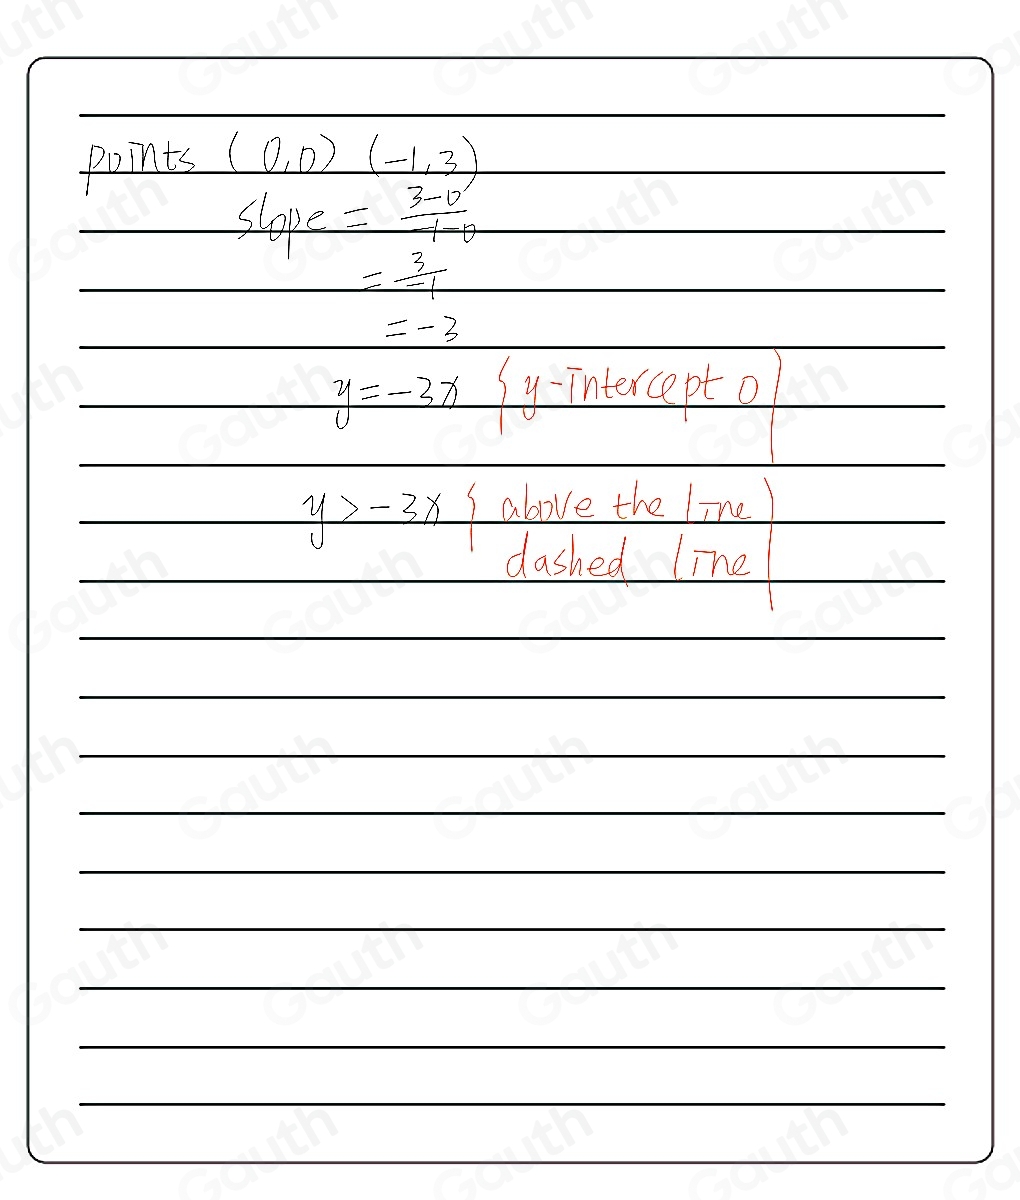 points (0,0) (-1,3)
slope = \frac{3-0}{-1-0}
= \frac{3}{-1}
= -3
y = -3x {y-intercept 0}
y > -3x {above the line
dashed line}